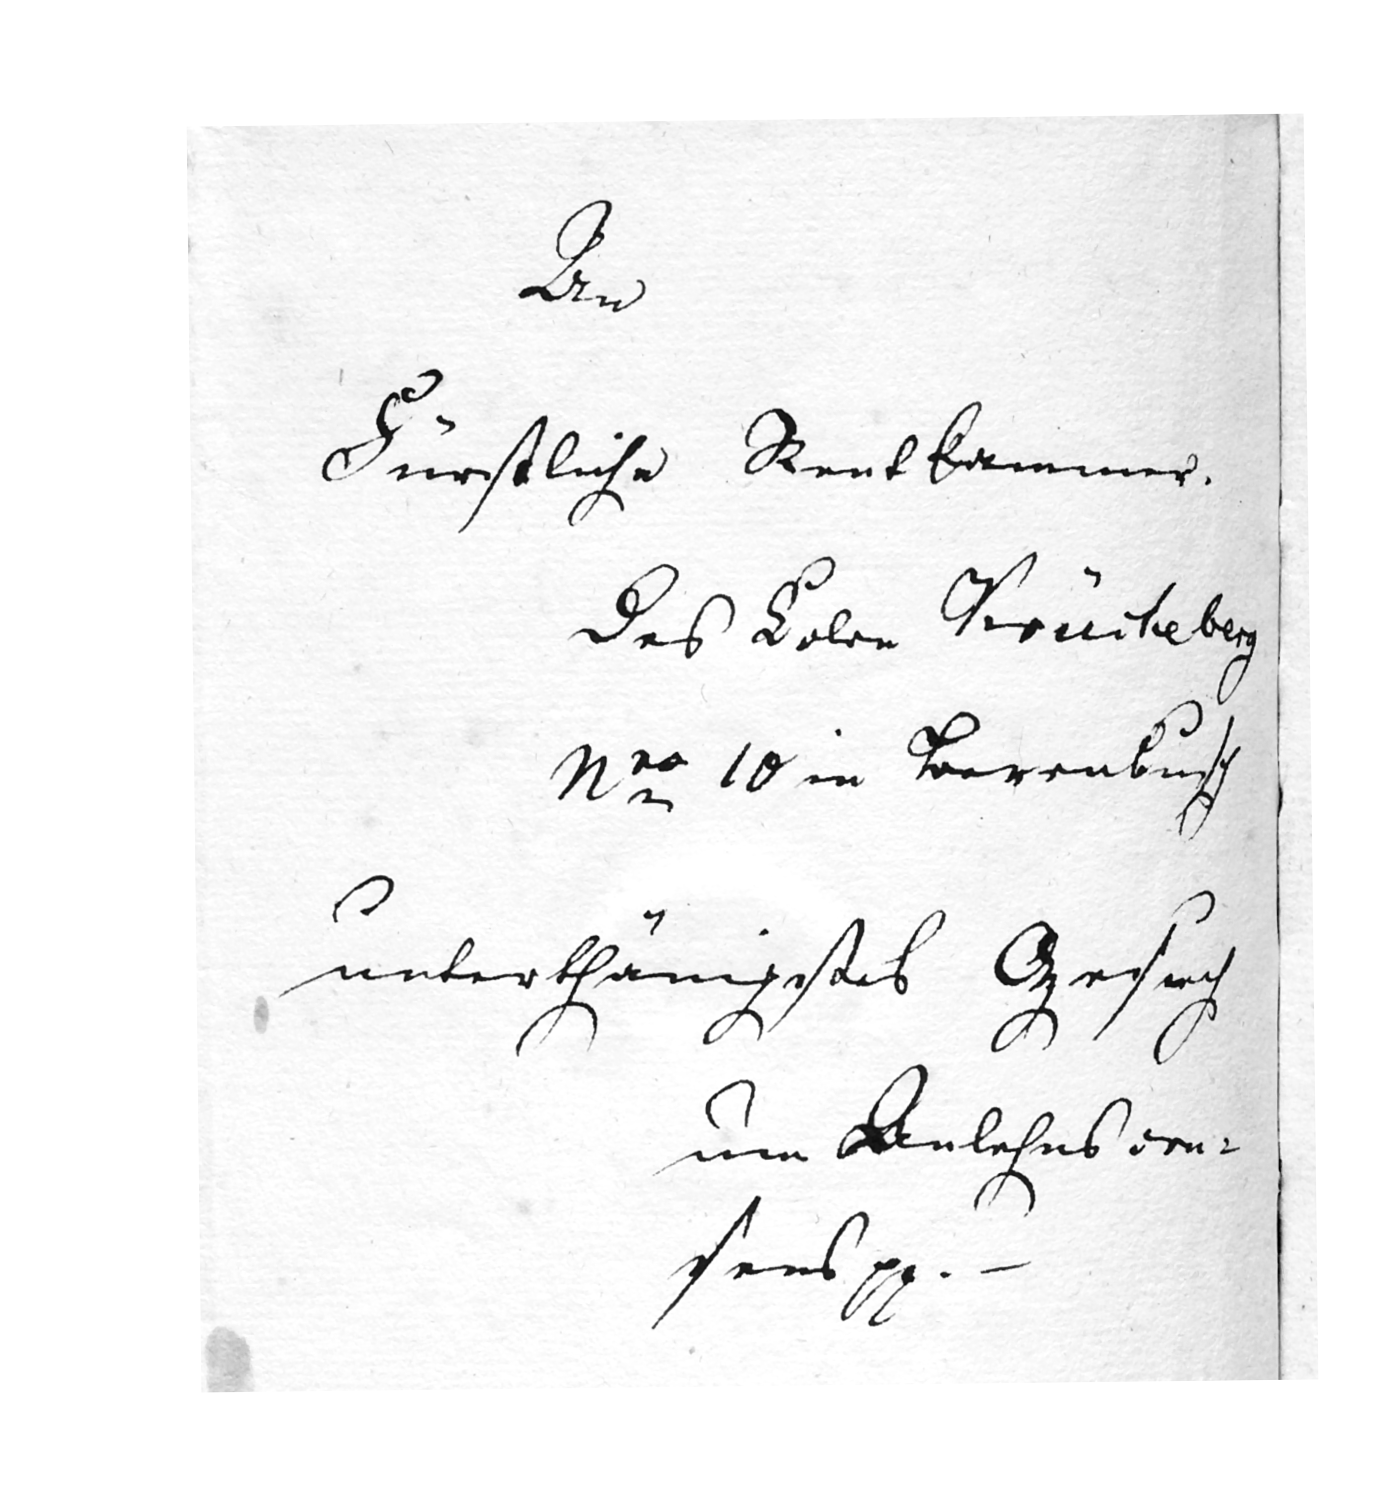 An
Fürstliche Rentkammer.
Des Colon Krückeberg
Nro 10 in Berenbusch
unterthänigstes Gesuch
um Anlehns con=
sens pp. –